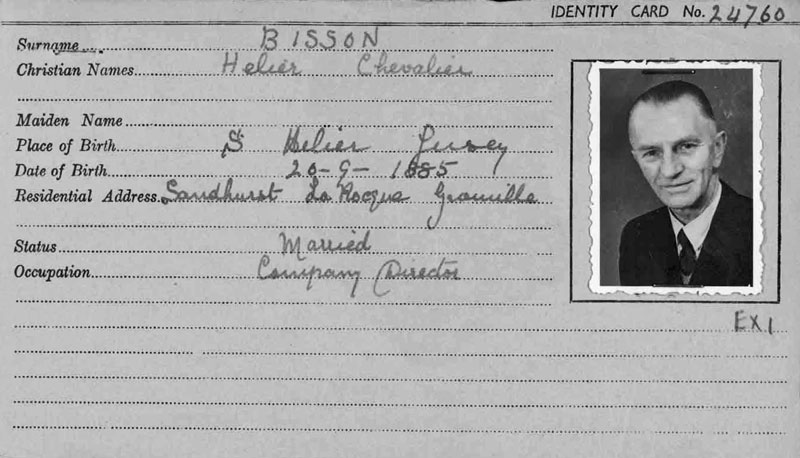 IDENTITY CARD No. 24760
Surname BISSON
Christian Names Helier Chevalier
Maiden Name
Place of Birth St Helier Jersey
Date of Birth 20-9-1885
Residential Address Sandhurst La Rocque Grouville
Status Married
Occupation Company Director
EX 1